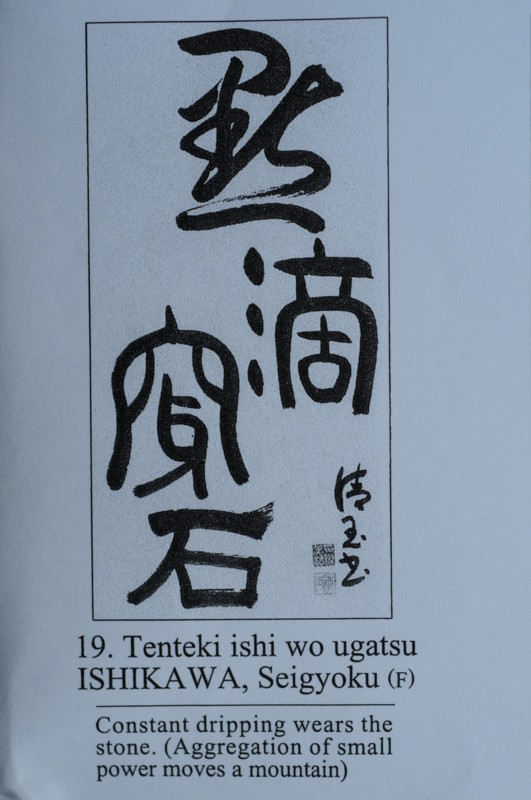 點滴
穿石
清玉書
19. Tenteki ishi wo ugatsu
ISHIKAWA, Seigyoku (F)
Constant dripping wears the
stone. (Aggregation of small
power moves a mountain)